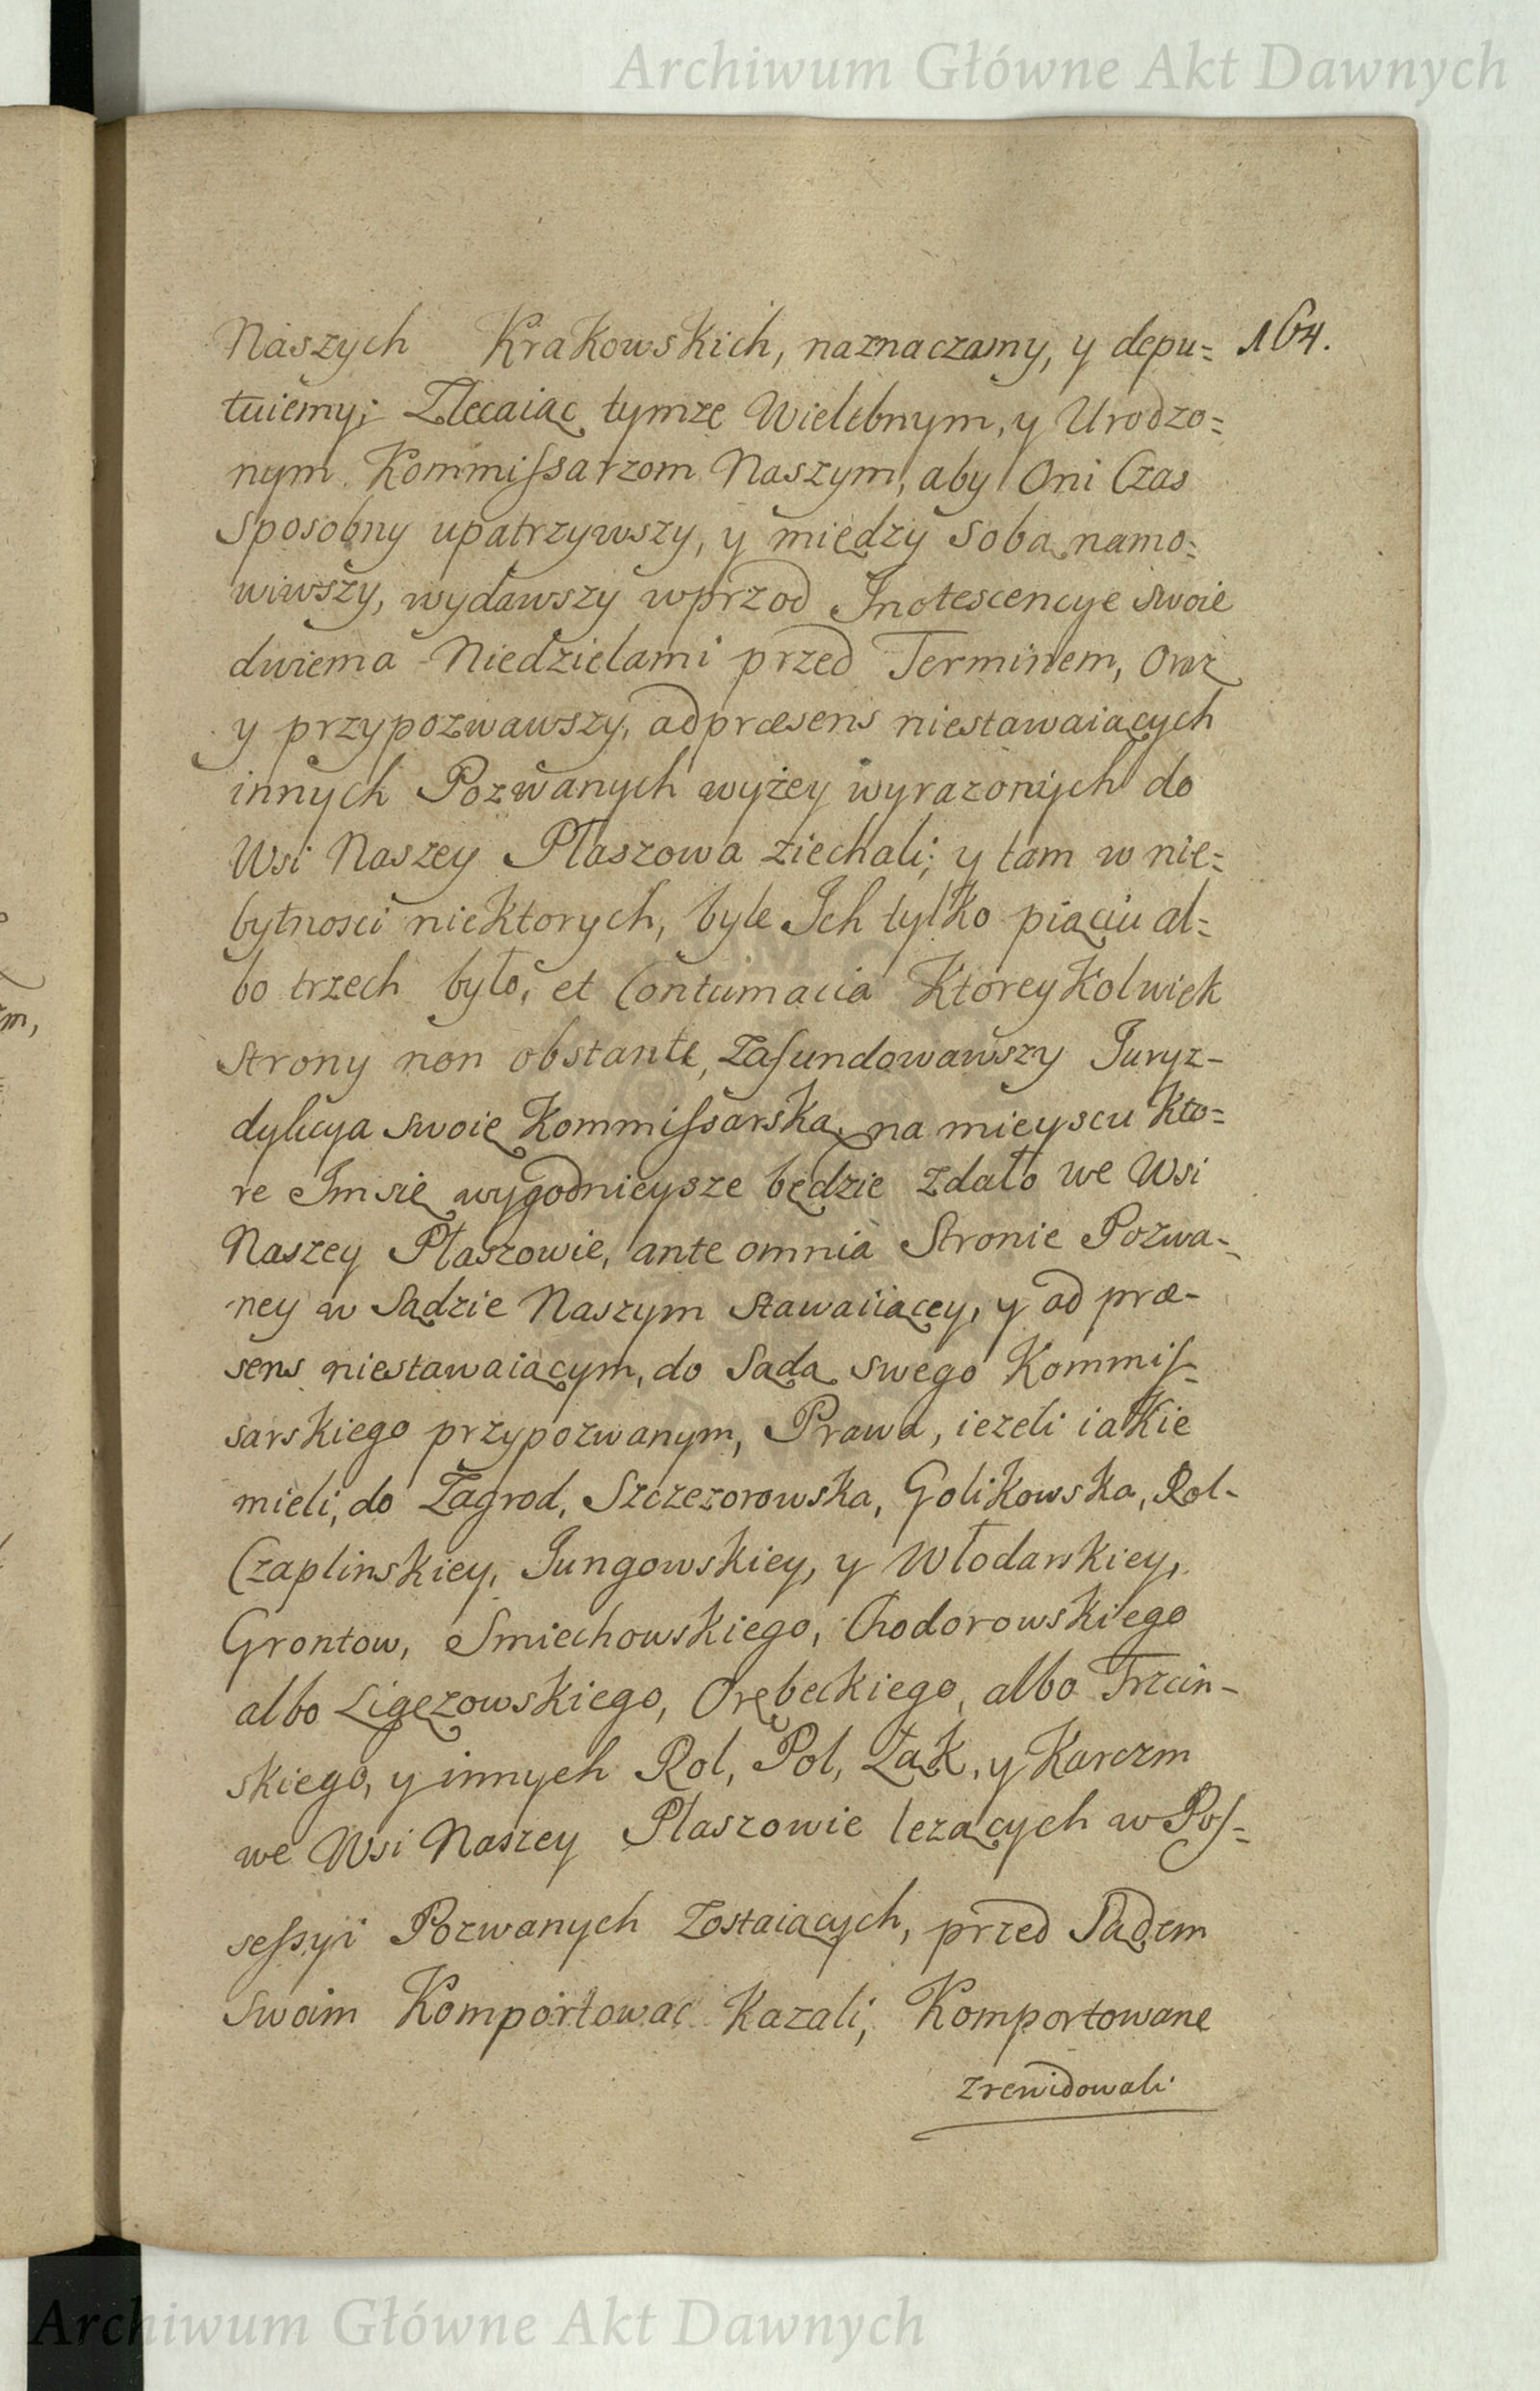 Archiwum Główne Akt Dawnych
Naszych Krakowskich, naznaczamy, y depu= 164.
tuiemy; Zlecaiąc tymże Wielebnym, y Urodzo=
nym Kommiſsarzom Naszym, aby Oni Czas
Sposobny upatrzywszy, y między Sobą namo=
wiwszy, wydawszy wprzod Jnotescencye swoie
dwiema Niedzielami przed Terminem, Oraz
y przypozwawszy, ad præsens niestawaiących
innych Pozwanych wyżey wyrazonych do
Wsi Naszey Płaszowa ziechali; y tam w nie=
bytnosci niektorych, byle Jch tylko piąciu al=
bo trzech było, et Contumacia Ktorey Kolwiek
Strony non obstante, Zafundowawszy Juryz-
dykcyą swoię Kommiſsarską, na mieyscu Kto=
re Jm się wygodnieysze będzie Zdało we Wsi
Naszey Płaszowie, ante omnia Stronie Pozwa-
ney w Sądzie Naszym Stawaiiącey, y ad præ-
sens niestawaiącym, do Sądą swego Kommiſ-
sarskiego przypozwanym, Prawa, iezeli iakie
mieli, do Zagrod, Szczezorowska, Golikowska, Rol-
Czaplinskiey, Jungowskiey, y Włodarskiey,
Grontow, Smiechowskiego, Chodorowskiego
albo Ligęzowskiego, Orębeckiego, albo Trzcin-
skiego, y innych Rol, Pol, Łąk, y Karczm
we Wsi Naszey Płaszowie lezących w Poſ=
seſsyi Pozwanych Zostaiących, przed Sądem
Swoim Komportować Kazali; Komportowane
zrewidowali
Archiwum Główne Akt Dawnych